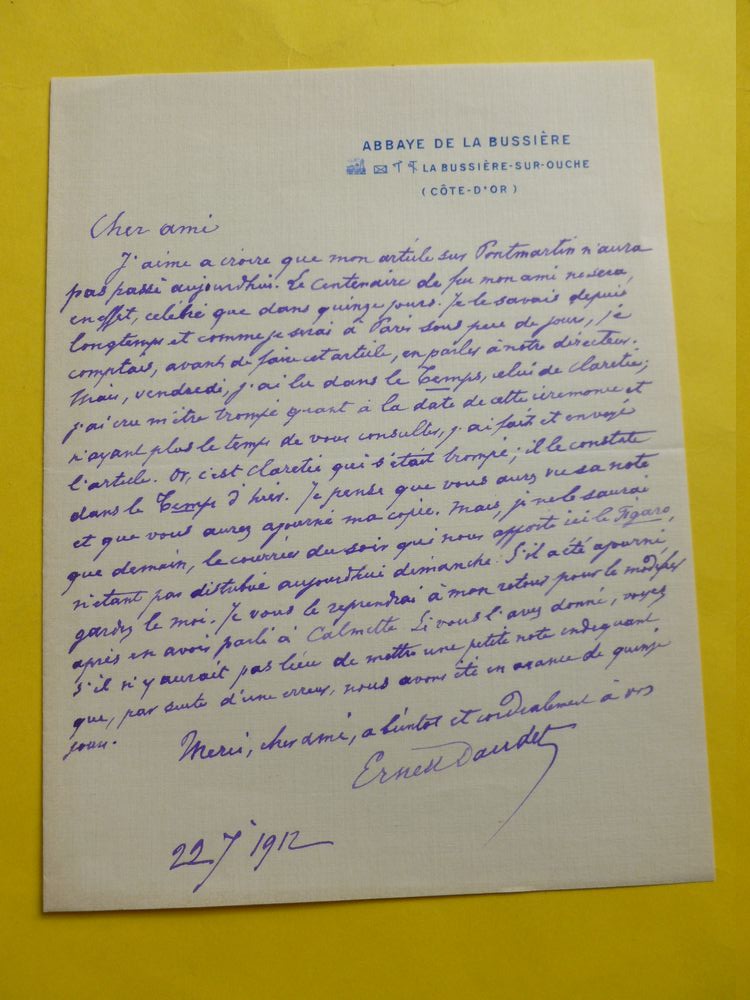 ABBAYE DE LA BUSSIÈRE
LA BUSSIÈRE-SUR-OUCHE
(CÔTE-D'OR)
Cher ami
J'aime a croire que mon article sur Pontmartin n'aura
pas passé aujourdhui. Le Centenaire de feu mon ami ne sera,
en effet, célébré que dans quinze jours. Je le savais depuis
longtemps et comme je serai à Paris sous peu de jours, je
comptais, avant de faire cet article, en parler à notre directeur.
Mais, vendredi, j'ai lu dans le Temps, celui de Claretie;
j'ai cru m'être trompé quant à la date de cette cérémonie et
n'ayant plus le temps de vous consulter, j'ai fait et envoyé
l'article. Or, c'est Claretie qui s'était trompé; il le constate
dans le Temps d'hier. Je pense que vous aurez vu sa note
et que vous aurez ajourné ma copie. Mais, je ne le saurai
que demain, le courrier du soir qui nous apporte ici le Figaro,
n'étant pas distribué aujourdhui dimanche. S'il a été ajourné,
gardez le moi. Je vous le reprendrai à mon retour pour le modifier
après en avoir parlé à Calmette. Si vous l'avez donné, voyez
s'il n'y aurait pas lieu de mettre une petite note indiquant
que, par suite d'une erreur, nous avons été en avance de quinze
jours.
Merci, cher ami, a bientot et cordialement à vos
Ernest Daudet
22 7 1912